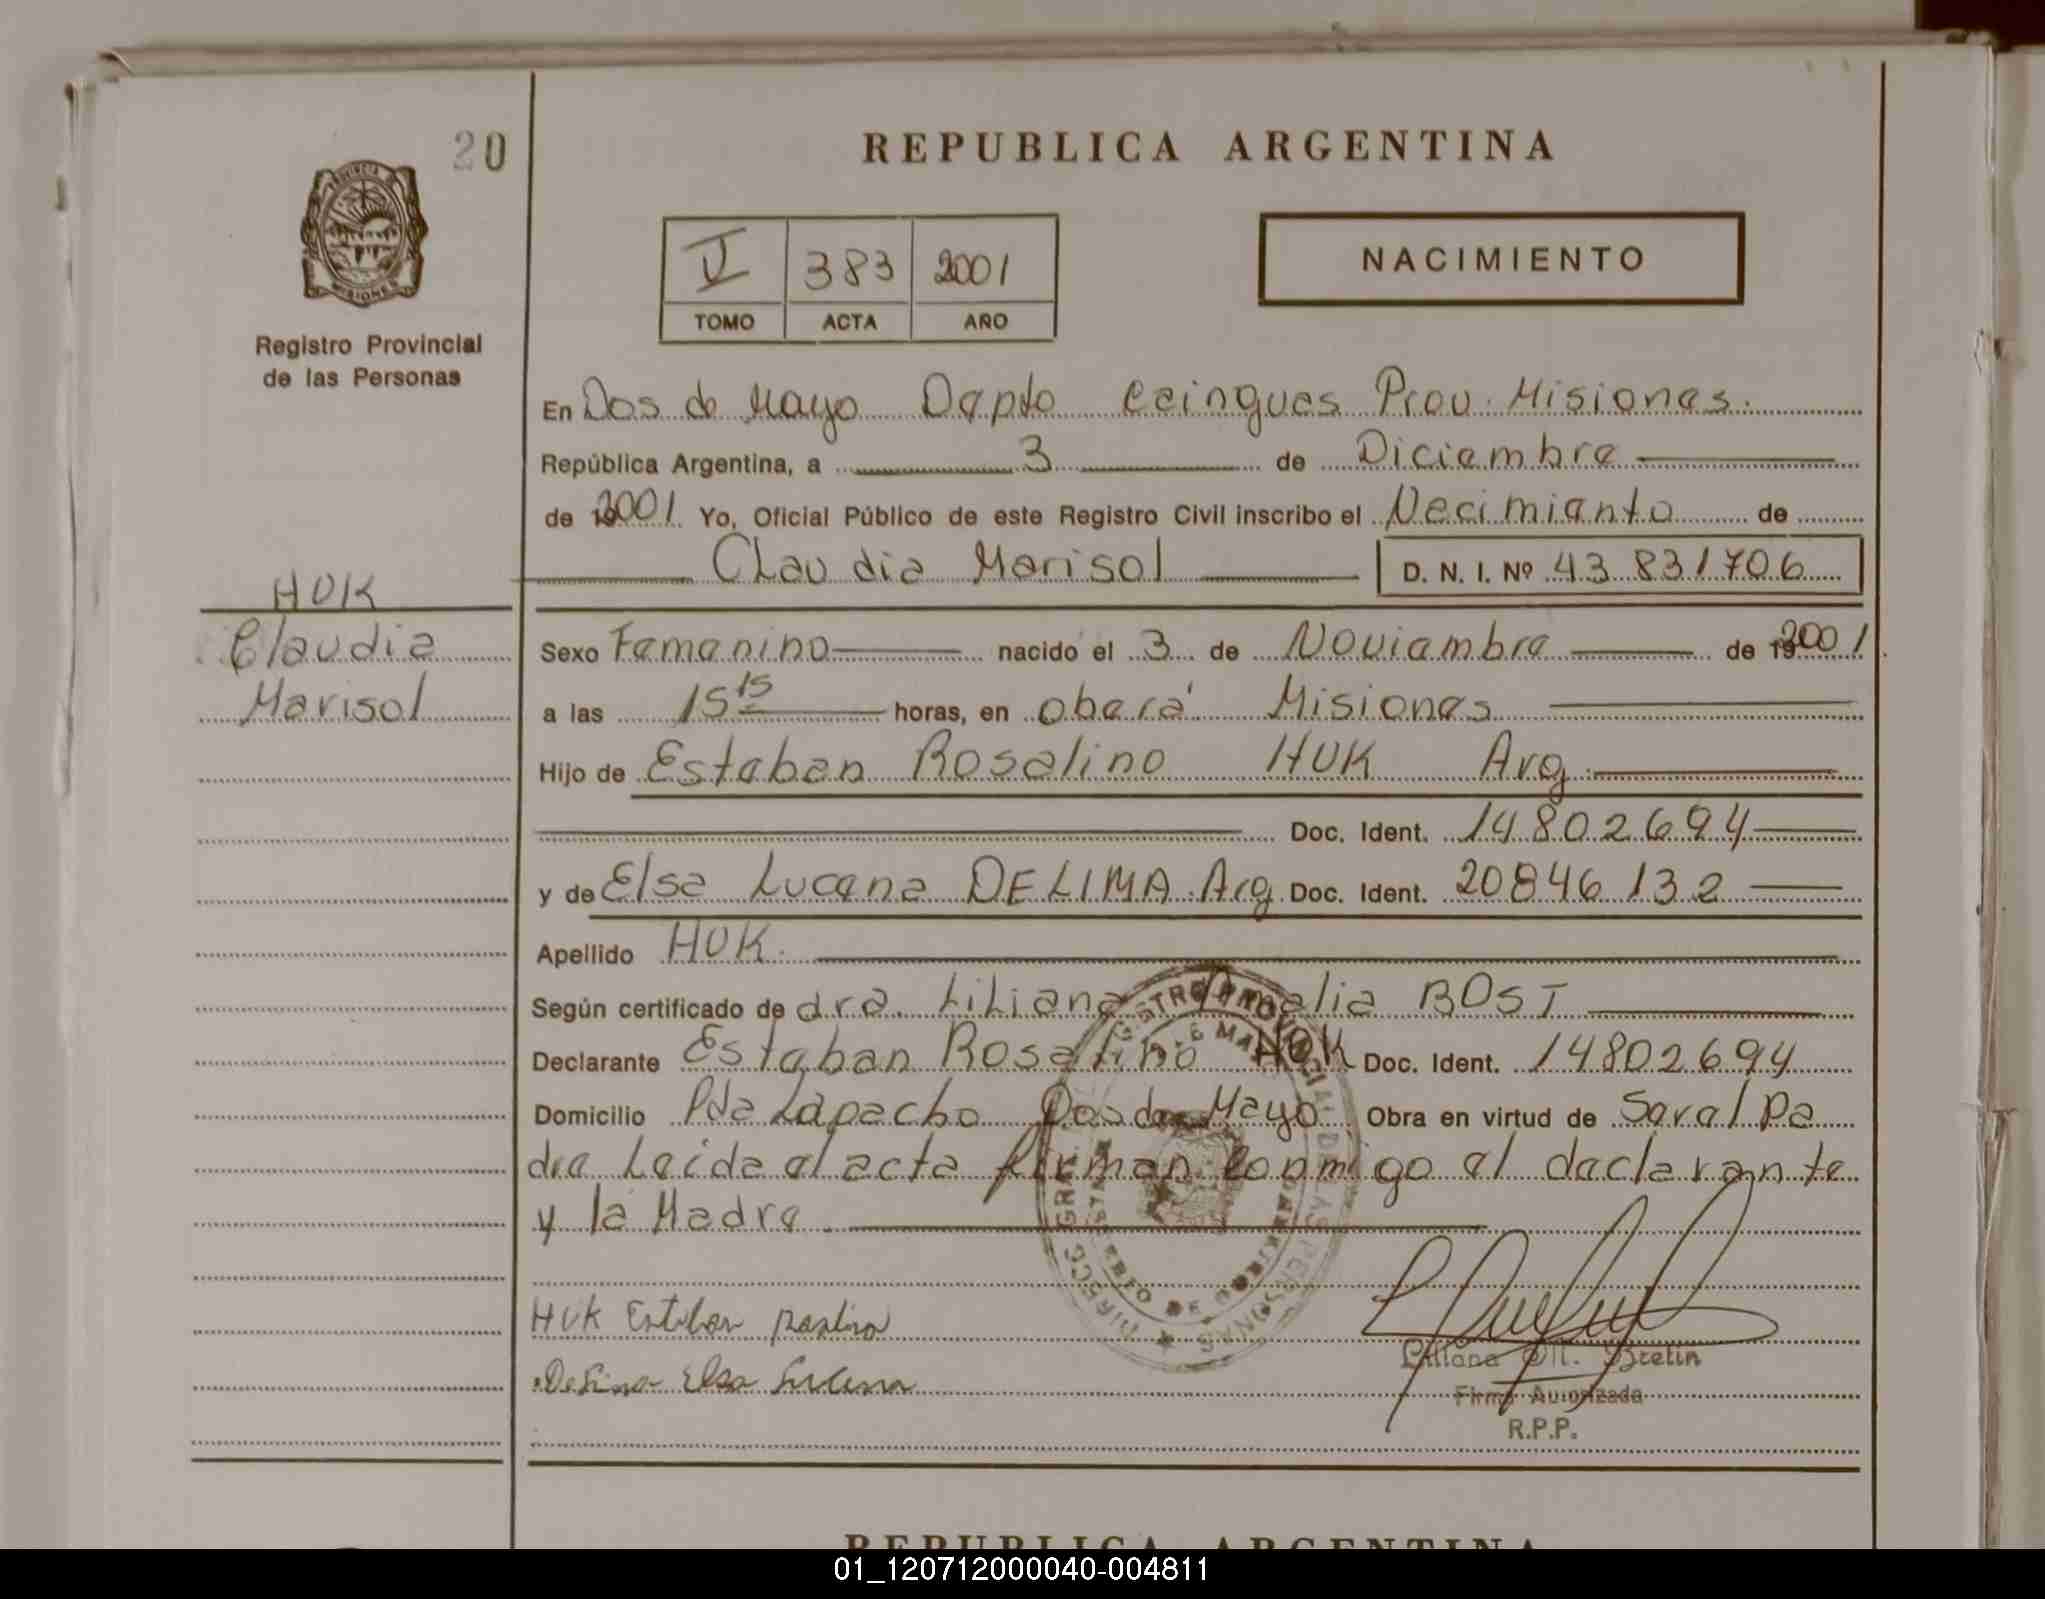 20
REPUBLICA ARGENTINA
PROVINCIA
MISIONES
Registro Provincial
de las Personas
V 383 2001
TOMO ACTA AÑO
NACIMIENTO
En Dos de Mayo Depto Cainguas Prov. Misiones.
República Argentina, a 3 de Diciembre
de 2001 Yo, Oficial Público de este Registro Civil inscribo el Necimiento de
Claudia Marisol D. N. I. Nº 43 831706
HUK
Claudia
Marisol
Sexo Femenino nacido el 3 de Noviembre de 2001
a las 15 15 horas, en oberá Misiones
Hijo de Esteban Rosalino HUK Arg.
Doc. Ident. 14802694
y de Elsa Lucena DELIMA Arg. Doc. Ident. 20846132
Apellido HUK
Según certificado de dra. Liliana Amalia BOST
Declarante Esteban Rosalino HUK Doc. Ident. 14802694
Domicilio Pda Lapacho Dos de Mayo Obra en virtud de Ser el Pa
dre Leida el acta firman conmigo el declarante
y la Madre
HUK Esteban Rosalino
Delima Elsa Lucena
Liliana M. Bretin
Firma Autorizada
R.P.P.
REPUBLICA ARGENTINA
01_120712000040-004811